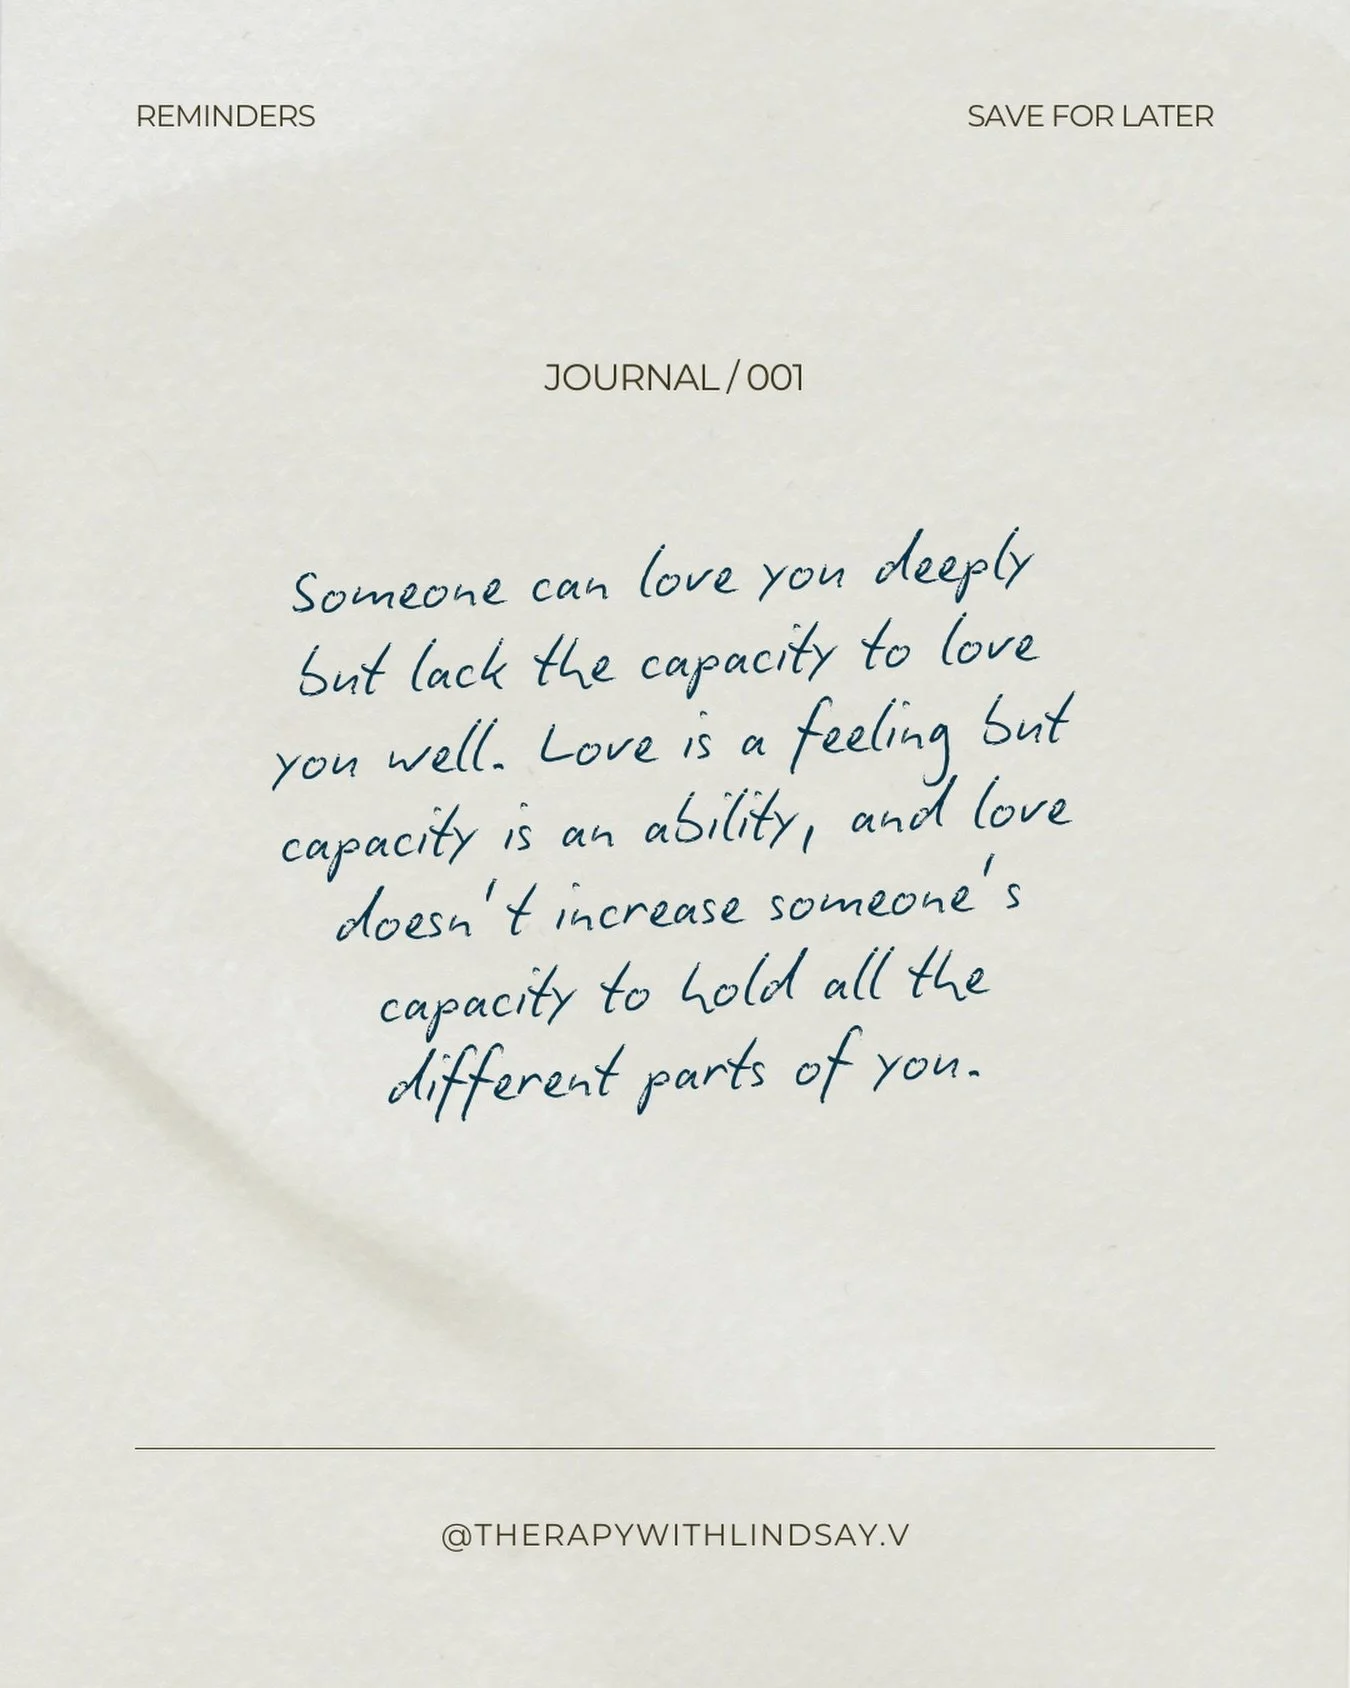 REMINDERS
SAVE FOR LATER
JOURNAL / 001
Someone can love you deeply
but lack the capacity to love
you well. Love is a feeling but
capacity is an ability, and love
doesn't increase someone's
capacity to hold all the
different parts of you.
@THERAPYWITHLINDSAY.V